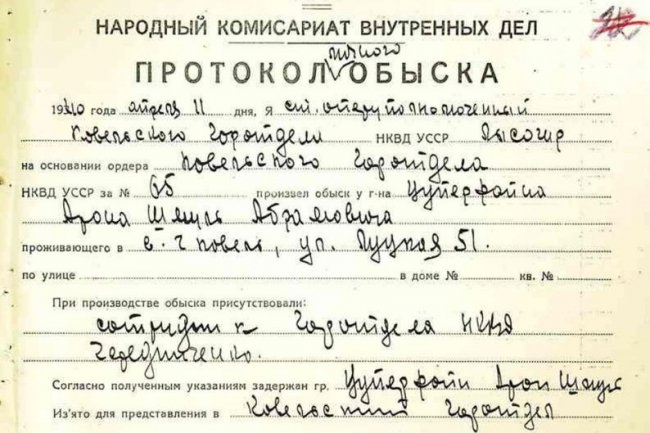 НАРОДНЫЙ КОМИСАРИАТ ВНУТРЕННЫХ ДЕЛ
личного
ПРОТОКОЛ ОБЫСКА
1940 года апреля 11 дня, Я ст. оперуполномоченный
Ковельского Горотдела НКВД УССР Высочир
на основании ордера Ковельского Горотдела
НКВД УССР за № 65 произвел обыск у г-на Цуперфайна
Арона Шмуль Абрамовича
проживающего в г. Ковель, ул. Луцкая 51.
по улице в доме № кв. №
При производстве обыска присутствовали:
сотрудник Горотдела НКВД
Чередниченко.
Согласно полученным указаниям задержан гр. Цуперфайн Арон Шмуль
Из'ято для представления в Ковельский Горотдел